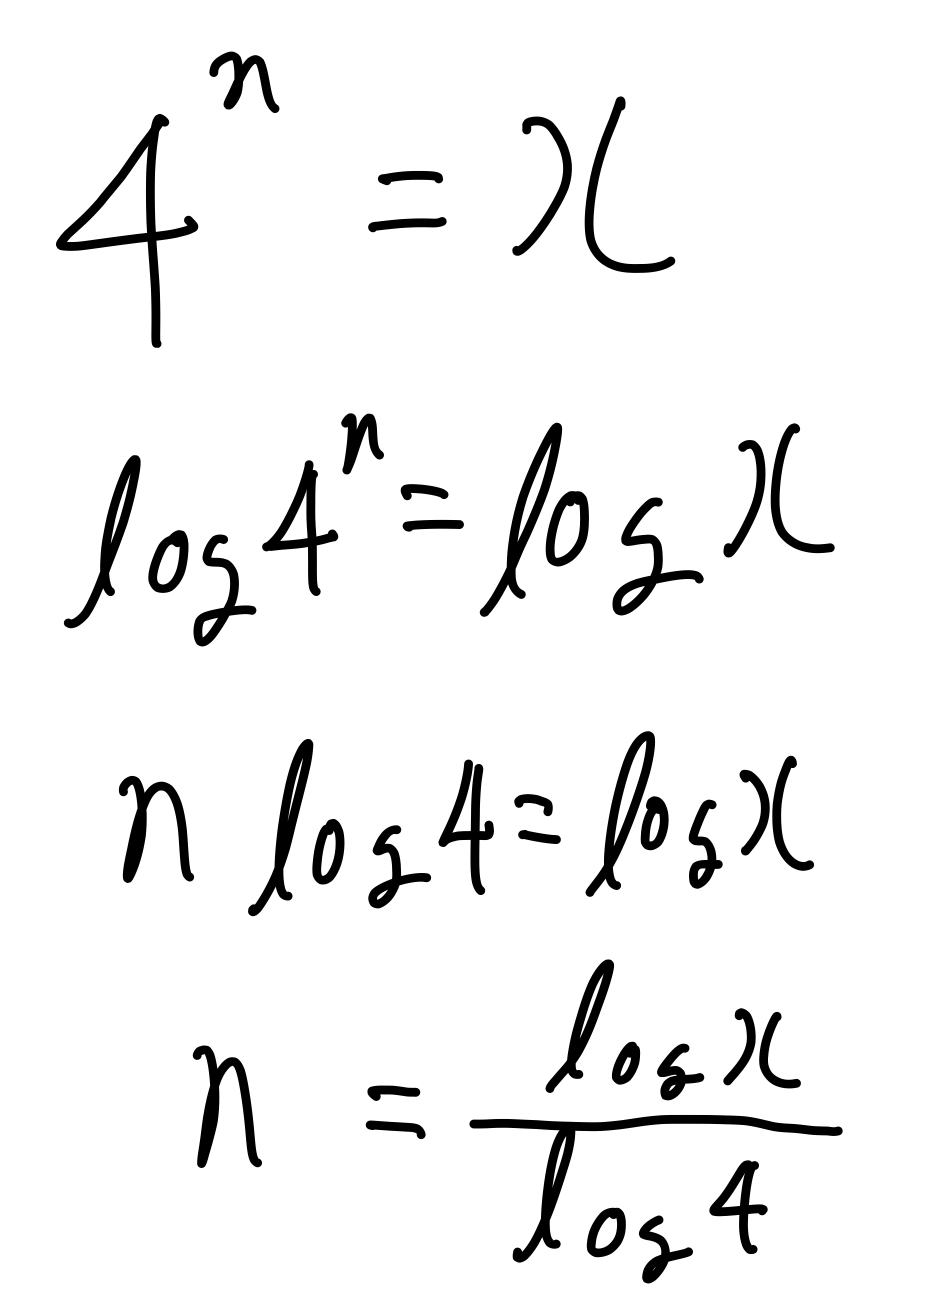 4ⁿ = x
log 4ⁿ = log x
n log 4 = log x
n = log x / log 4